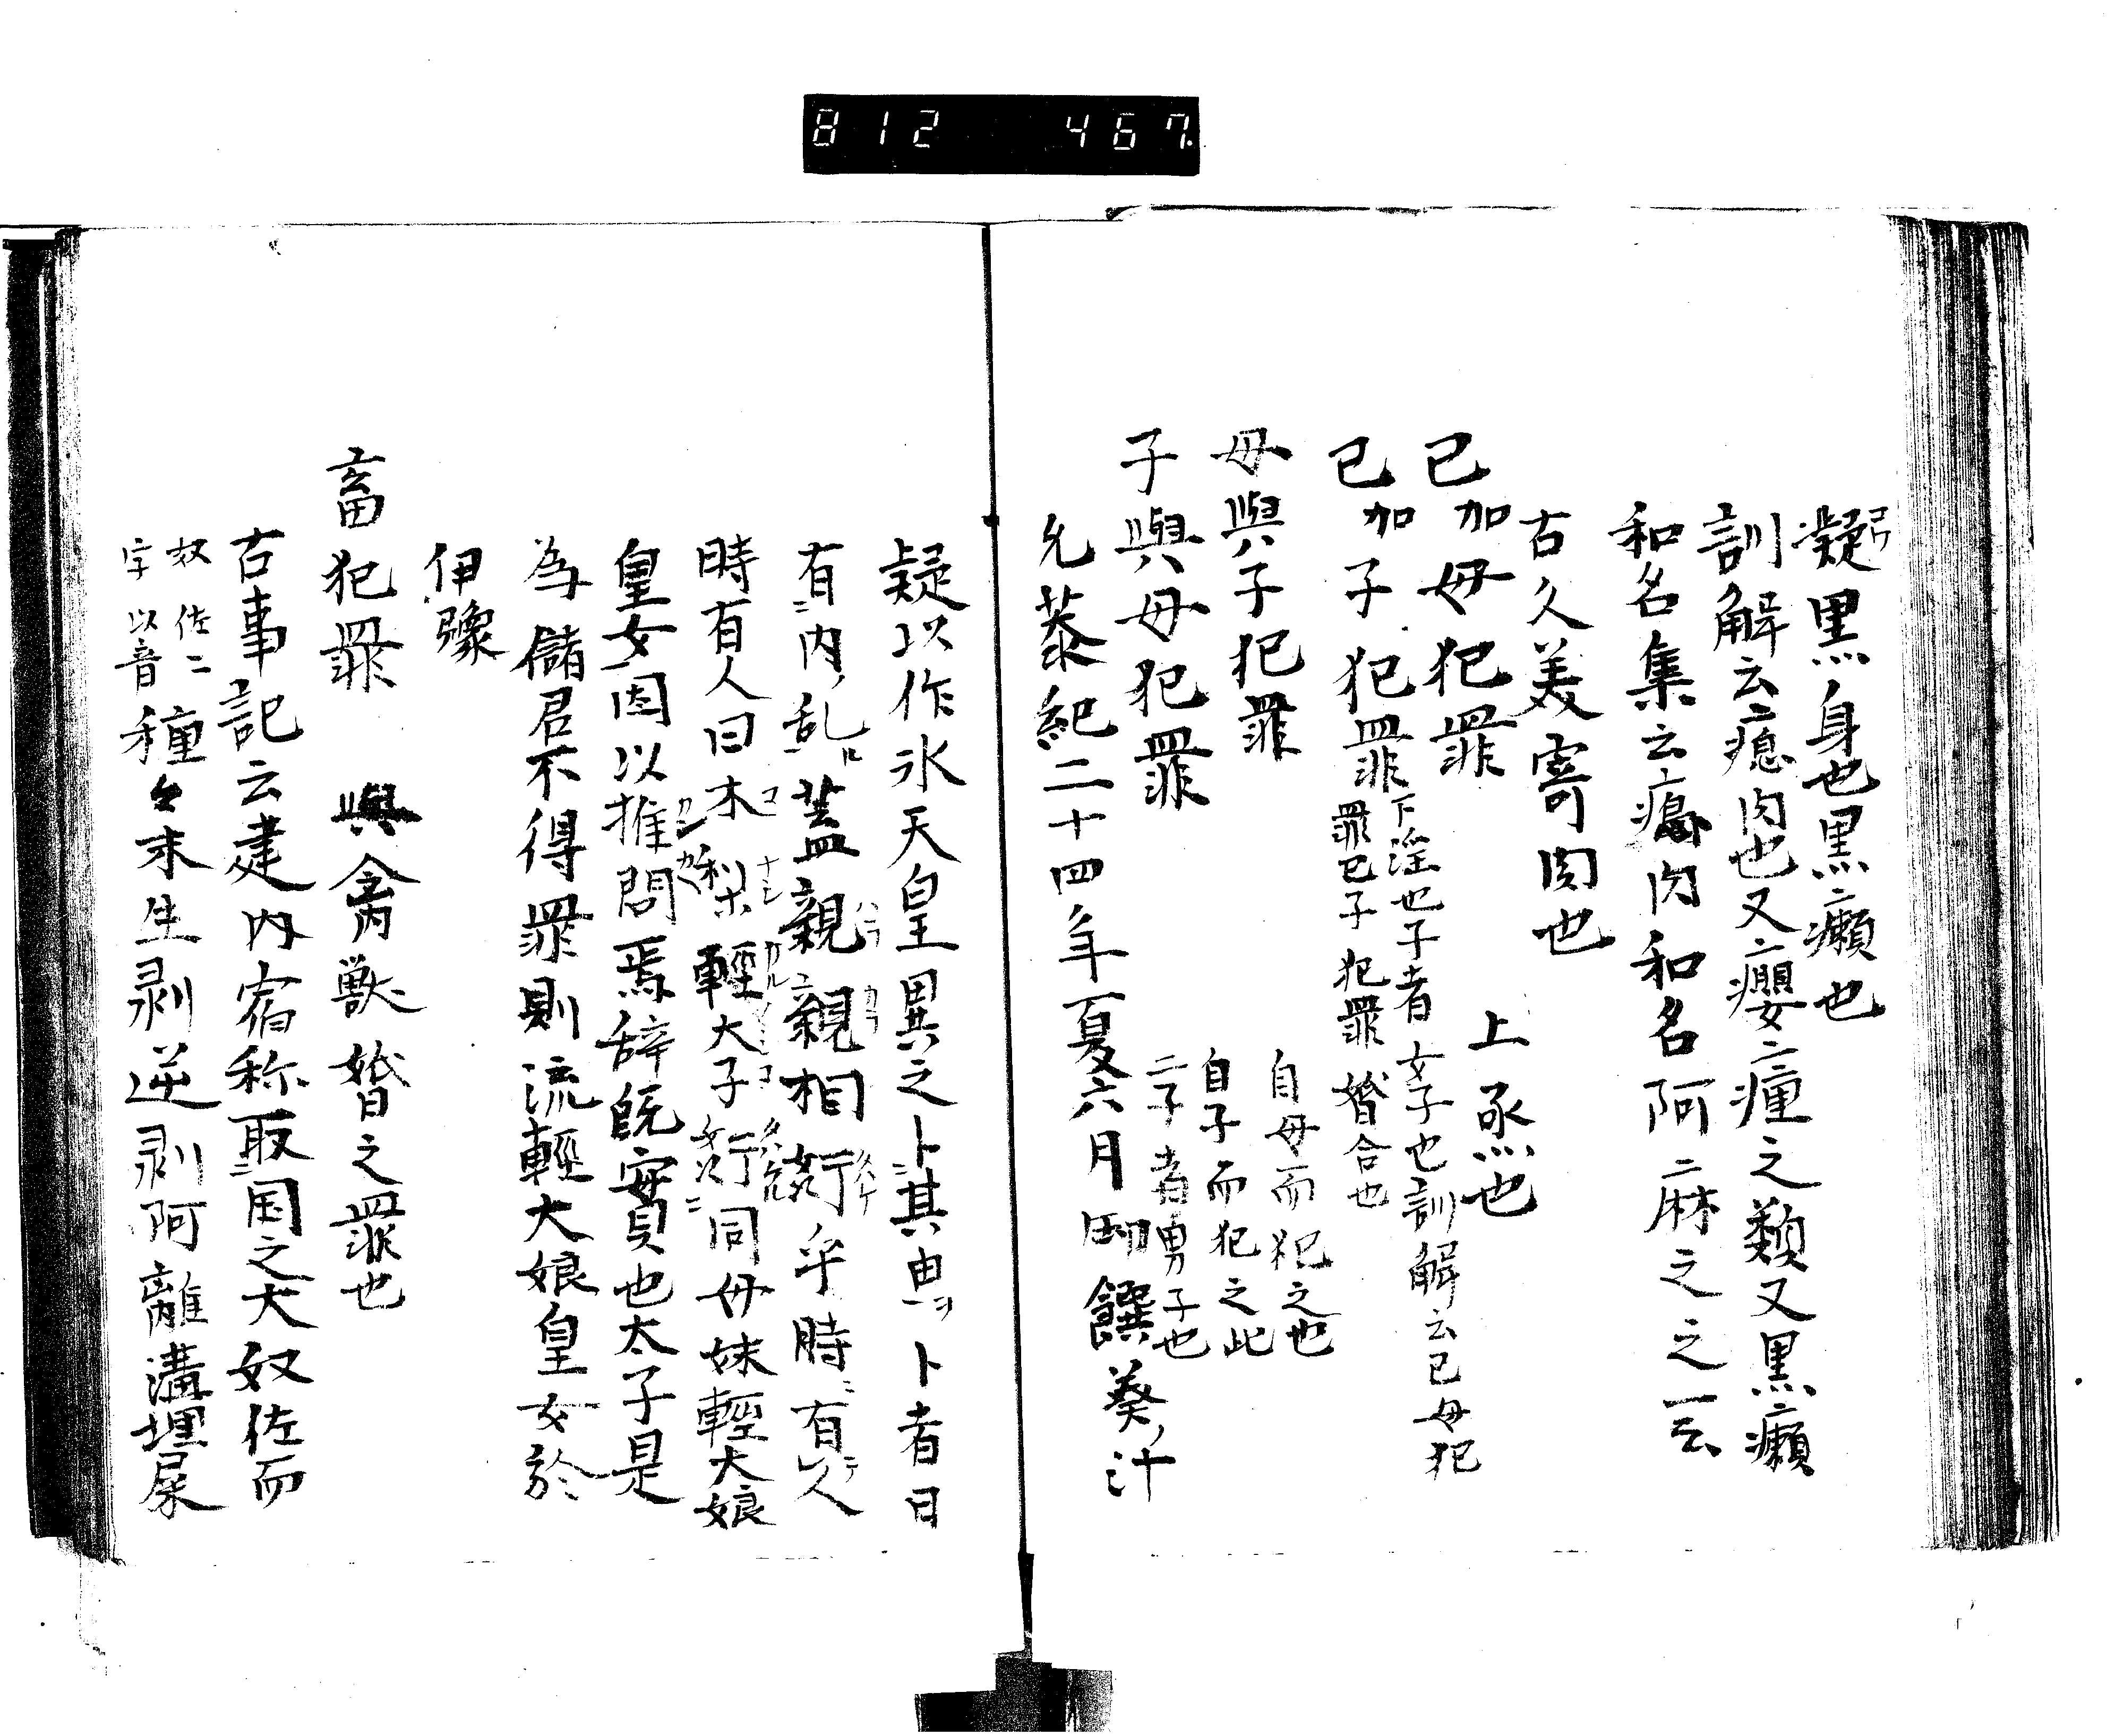 812 467
凝黒身也黒癩也
訓解云瘜肉也又癭瘇之類又黒癩
和名集云瘜肉和名阿麻之之一云
古久美寄肉也
已加母犯罪 上烝也
已加子犯罪 下淫也子者女子也訓解云已母犯
罪已子犯罪婚合也
母與子犯罪 自母而犯之也
子與母犯罪 自子而犯之此
子者男子也
允恭紀二十四年夏六月御饌羮汁
凝以作氷天皇異之卜其由卜者曰
有内乱蓋親親相姧乎時有人
時有人曰木梨輕太子姧同母妹輕大娘
皇女因以推問焉辞既實也太子是
為儲君不得罪則流輕大娘皇女於
伊豫
畜犯罪 與禽獣婚之罪也
古事記云建内宿称取国之大奴佐而
奴佐二
字以音
種々求生剥逆剥阿離溝埋屎